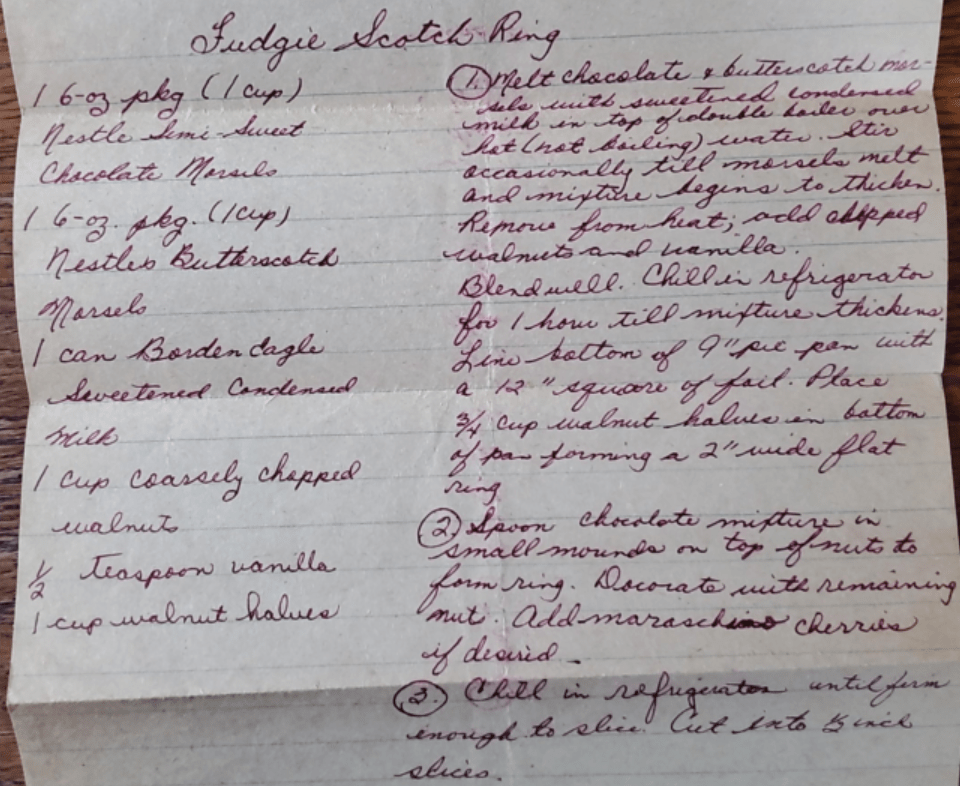 Fudgie Scotch Ring
1 6-oz pkg (1 cup)
Nestle Semi-Sweet
Chocolate Morsels
1 6-oz. pkg. (1 cup)
Nestles Butterscotch
Morsels
1 can Borden Eagle
Sweetened Condensed
Milk
1 cup coarsely chopped
walnuts
1/2 teaspoon vanilla
1 cup walnut halves
1. Melt chocolate & butterscotch mor-
sels with sweetened condensed
milk in top of double boiler over
hot (not boiling) water. Stir
occasionally till morsels melt
and mixture begins to thicken.
Remove from heat; add chopped
walnuts and vanilla.
Blend well. Chill in refrigerator
for 1 hour till mixture thickens.
Line bottom of 9" pie pan with
a 12" square of foil. Place
3/4 cup walnut halves in bottom
of pan forming a 2" wide flat
ring
2. Spoon chocolate mixture in
small mounds on top of nuts to
form ring. Docorate with remaining
nut. Add maraschino cherries
if desired.
3. Chill in refrigerator until firm
enough to slice. Cut into 1/2 inch
slices.